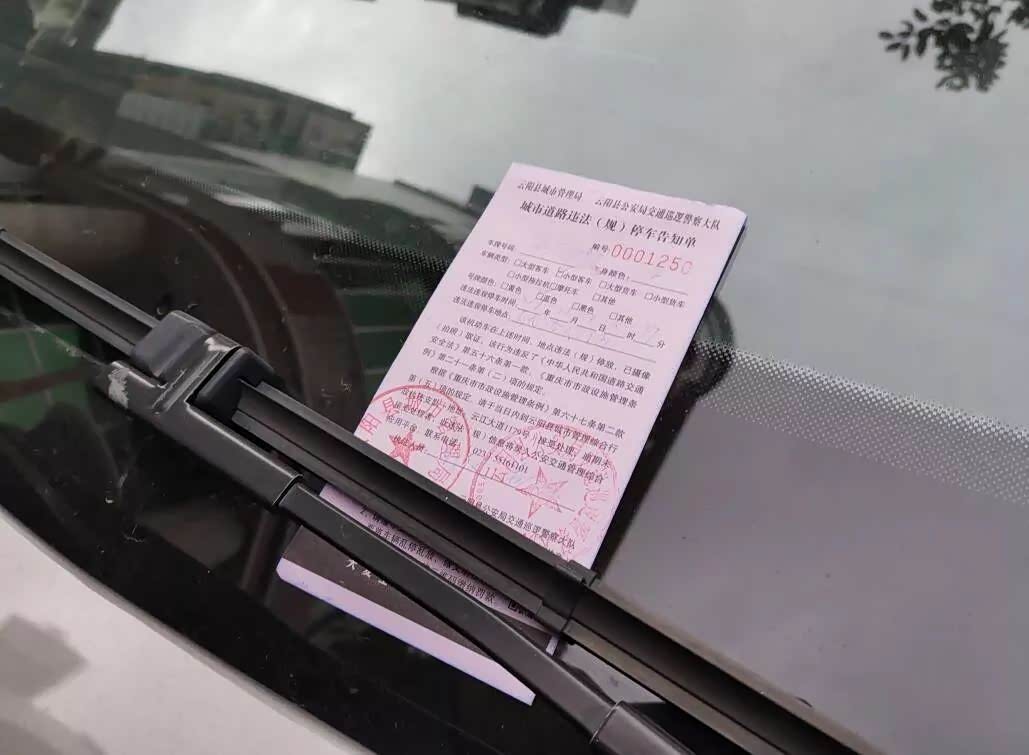 云阳县城市管理局 云阳县公安局交通巡逻警察大队
城市道路违法（规）停车告知单
编号:0001250
车牌号码: 车身颜色:
车辆类型: □大型客车 □小型客车 □大型货车 □小型货车
□小型拖拉机□摩托车 □其他
号牌颜色: □黄色 □蓝色 □黑色 □其他
违法违规停车时间: 年 月 日 时 分
违法违规停车地点:
该机动车在上述时间、地点违法（规）停放，已摄像
（拍照）取证，该行为违反了《中华人民共和国道路交通
安全法》第五十六条第一款、《重庆市市政设施管理条
例》第二十一条第（二）项的规定。
根据《重庆市市政设施管理条例》第六十七条第二款
第（五）项的规定，请于当日内到云阳县城市管理综合行
云江大道1179号）接受处理；逾期未
规）信息将录入公安交通管理综合
联系电话: 023-55161101
公安局交通巡逻警察大队